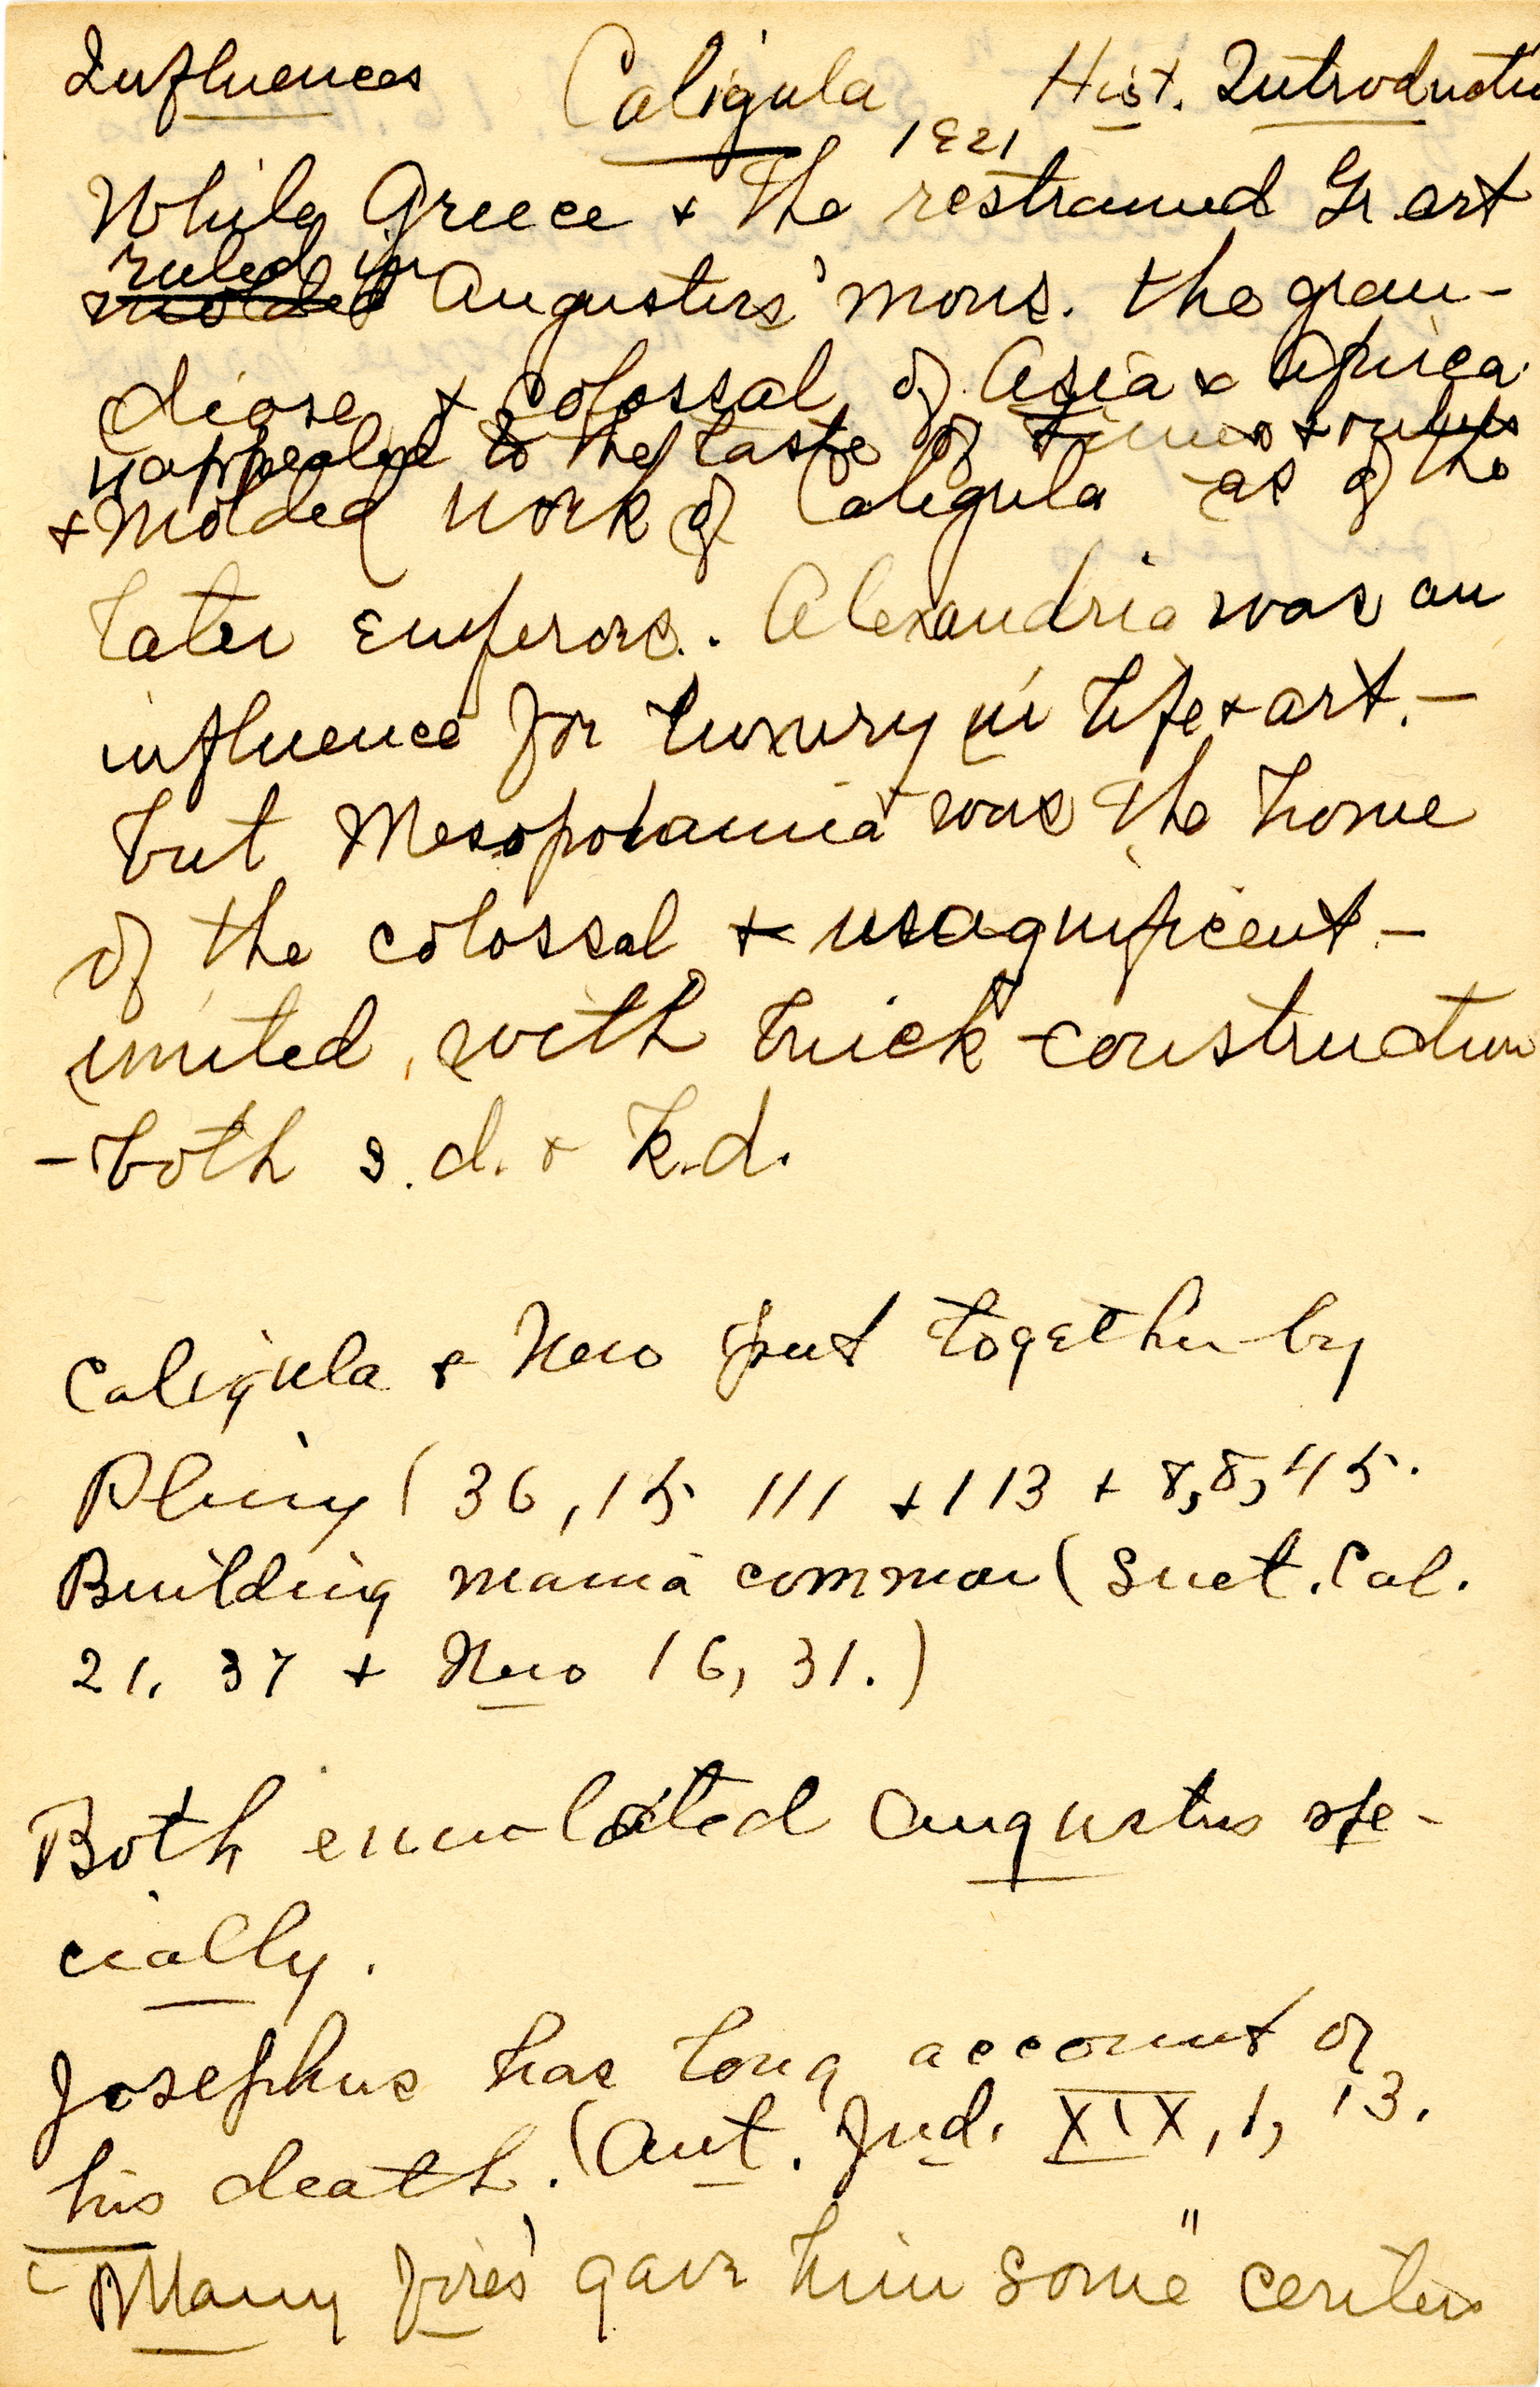 Influences Caligula Hist. Introductio
1921
While Greece + the restrained Gr art
ruled in
molded Augustus' mons. the gran-
diose & colossal of Asia & Africa
appealed to the taste of times + rulers
+ molded work of Caligula as of the
later emperors. Alexandria was an
influence for luxury in life + art. -
but Mesopotamia was the home
of the colossal + magnificent -
united, with brick construction
- both s.d. + k.d.
Caligula & Nero put together by
Pliny (36, 15 111 + 113 + 8, 8, 45.
Building mania common (Suet. Cal.
21, 37 + Nero 16, 31.)
Both emulated Augustus spe-
cially.
Josephus has long account of
his death. (Ant. Jud. XIX, 1, 13.
Many fires gave him some"